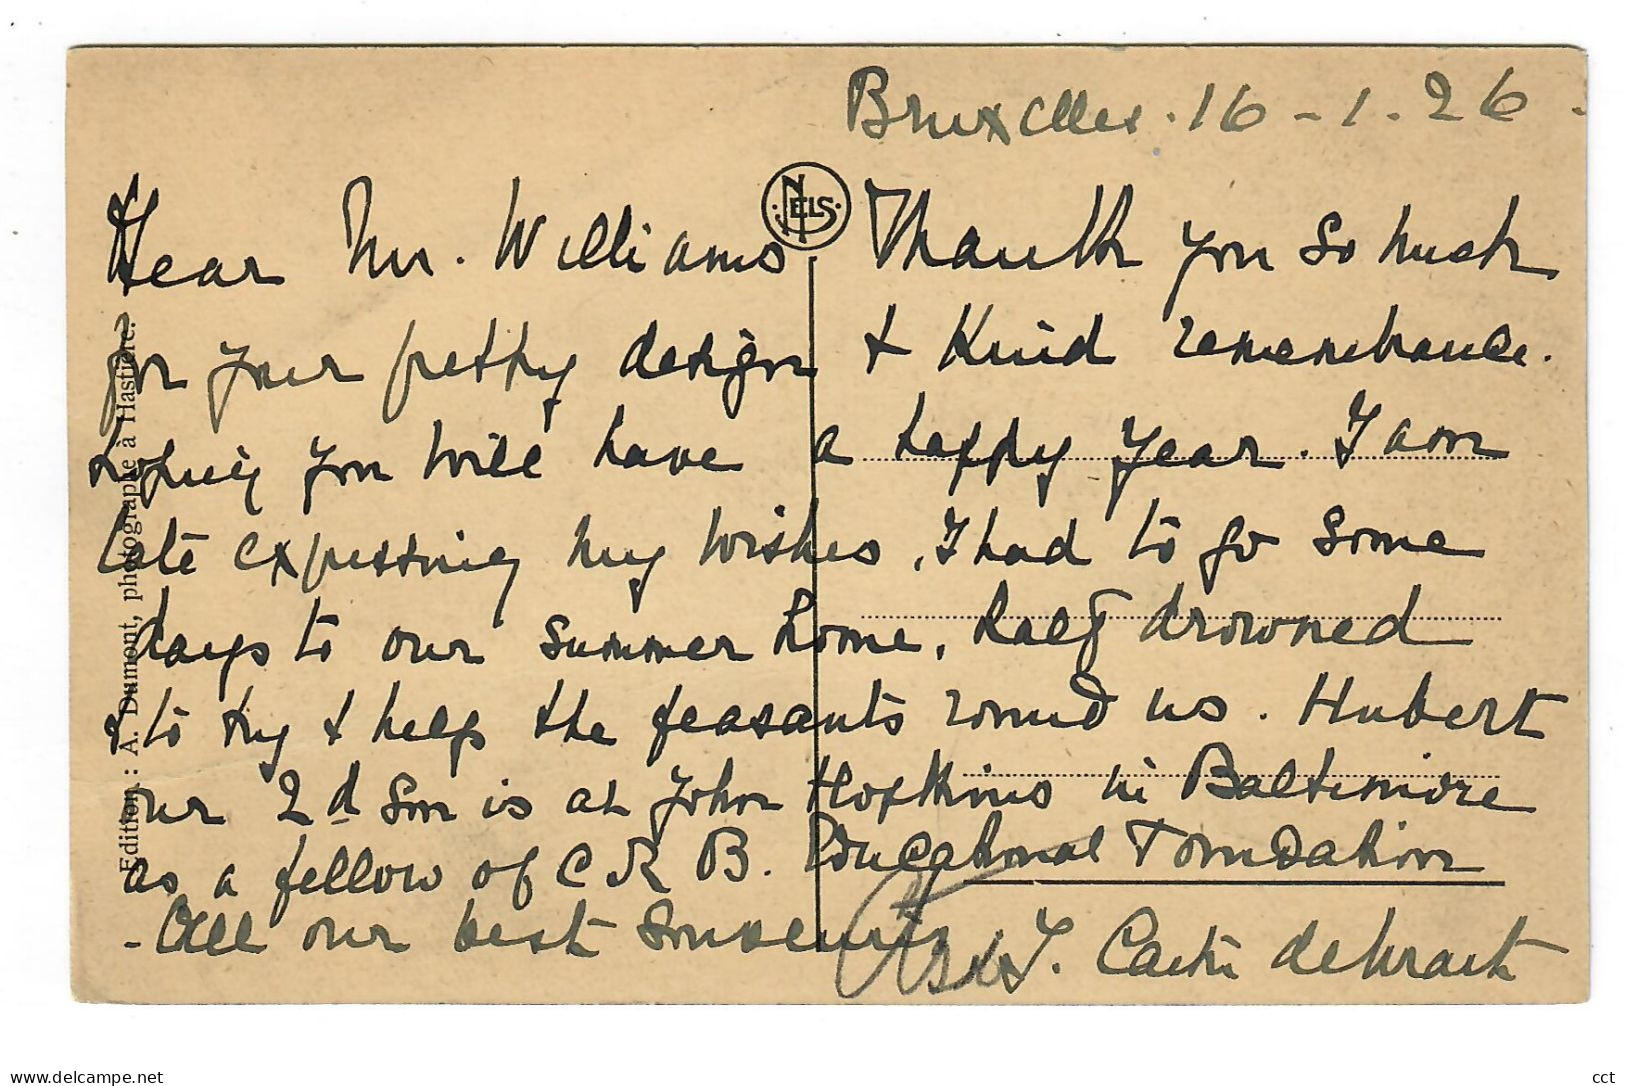 Bruxelles . 16 - 1 . 26 .
Dear Mr. Williams Thank you so much
for your pretty design & kind remembrance.
hoping you will have a happy year. I am
late expressing my wishes, I had to go some
days to our summer home, half drowned
& to try & help the peasants round us. Hubert
our 2d son is at John Hopkins in Baltimore
as a fellow of C R B. Educational Foundation
- All our best souvenirs
NELS
Edition : A. Dumont, photographe à Hastière.
www.delcampe.net
cct